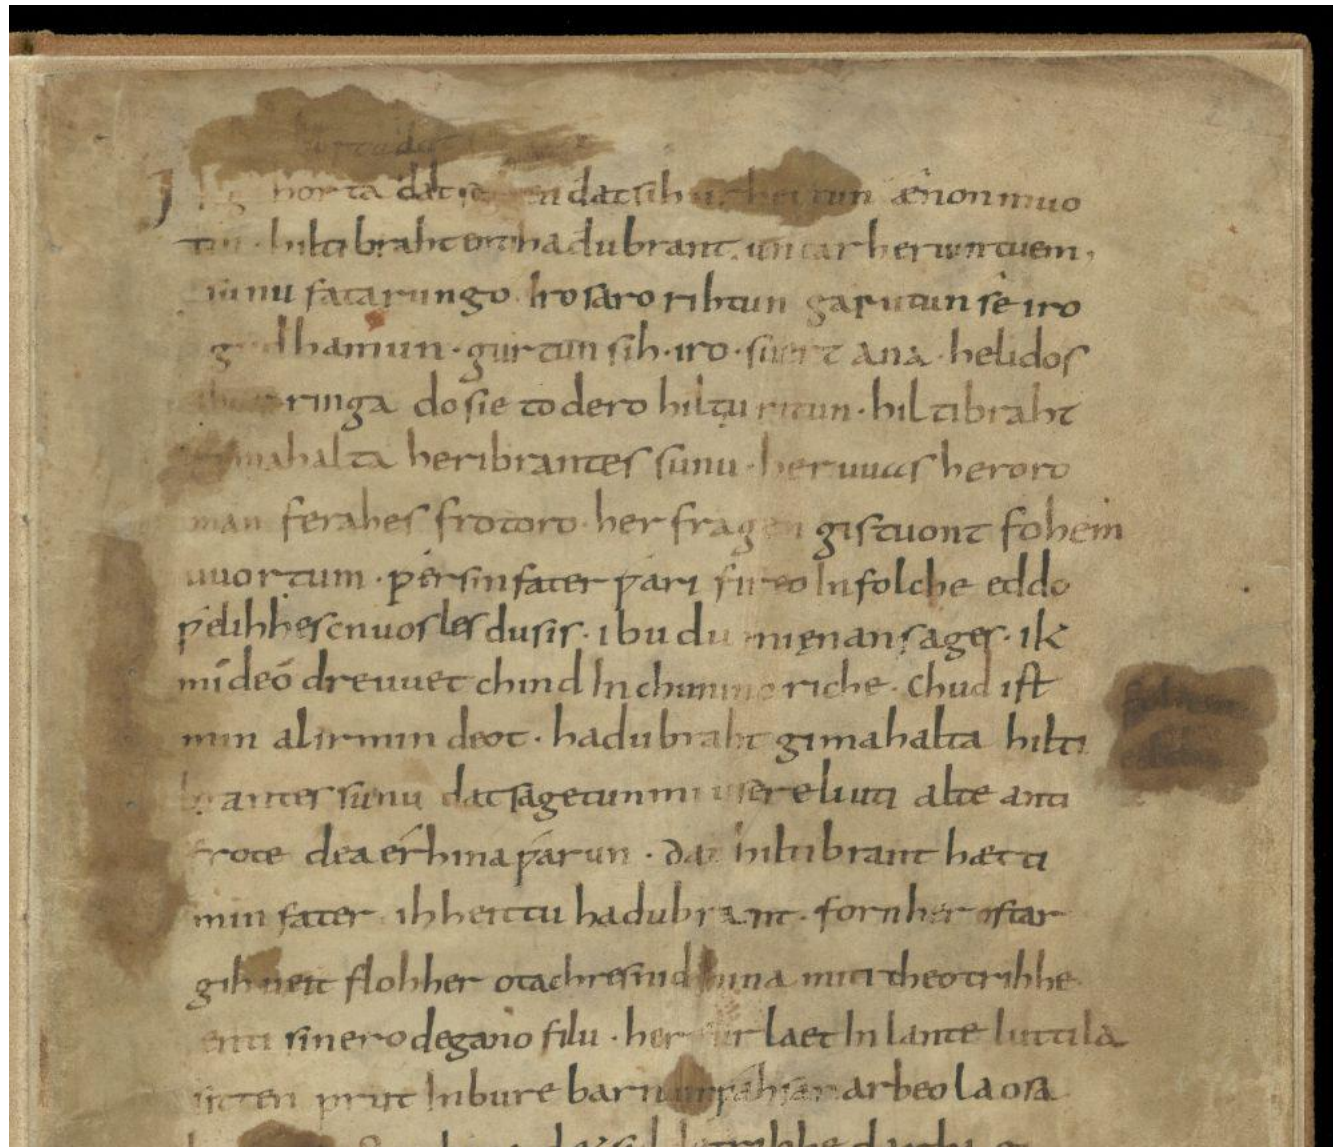 Ik gihorta dat seggen dat sih urhettun ænon muo
tin. hiltibraht enti hadubrant. untar heriun tuem,
sunu fatarungo. iro saro rihtun garutun sê iro
gudhamun. gurtun sih. iro. suert ana. helidos
ubar ringa do sie to dero hiltu ritun. hiltibraht
gimahalta heribrantes sunu. her uuas heroro
man ferahes frotoro. her fragen gistuont fohem
uuortum. ƿer sin fater ƿari fireo In folche eddo
ƿelihhes cnuosles du sis. ibu du mi ęnan sages. ik
mi deo dre uuet chind In chunincriche. Chud ist
min al irmin deot. hadubraht gimahalta hilti
brantes sunu dat sagetun mi usere liuti alte anti
frote dea érhina ƿarun. dat hiltibrant hætti
min fater. ih heittu hadubrant. forn her ostar
gihueit floh her otachres nid hina miti theotrihhe
enti sinero degano filu. her fur laet In lante luttila
sitten prut In bure barn unƿahsan arbeo laosa